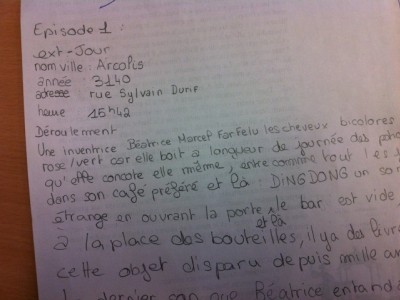 Episode 1 :
ext-Jour
nom ville : Arcolis
année : 3140
adresse rue Sylvain Dune
heure 15h42
Déroulement
Une inventrice Béatrice Marcet Farfelu les cheveux bicolores
rose/vert car elle boit a longueur de journée des
qu'elle concote elle même, entre comme tout les
dans son café préféré et là : DiNGDONG un
étrange en ouvrant la porte, le bar est vide,
et là
à la place des bouteilles, il y a des
cette objet disparu depuis mille
dernier que Béatrice